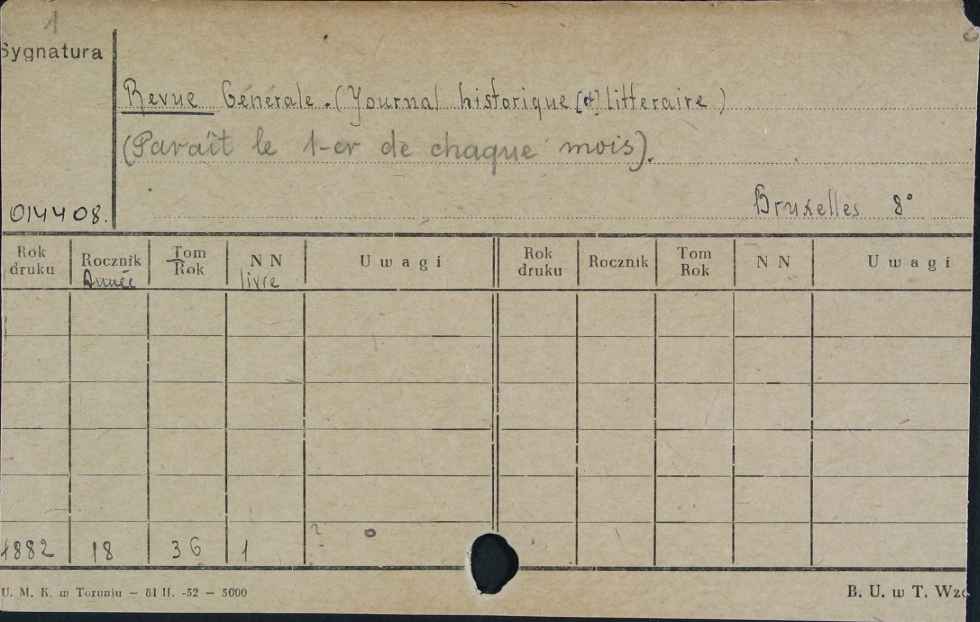 1
Sygnatura
Revue Générale. (Journal historique [et] litteraire)
(Paraît le 1-er de chaque mois).
014408.
Bruxelles 8°
Rok druku Rocznik Tom Rok N N Uwagi Rok druku Rocznik Tom Rok N N Uwagi
Année livre
1882 18 36 1 ?
U. M. K. w Toruniu — 81 II. -52 — 5000
B. U. w T. Wzó